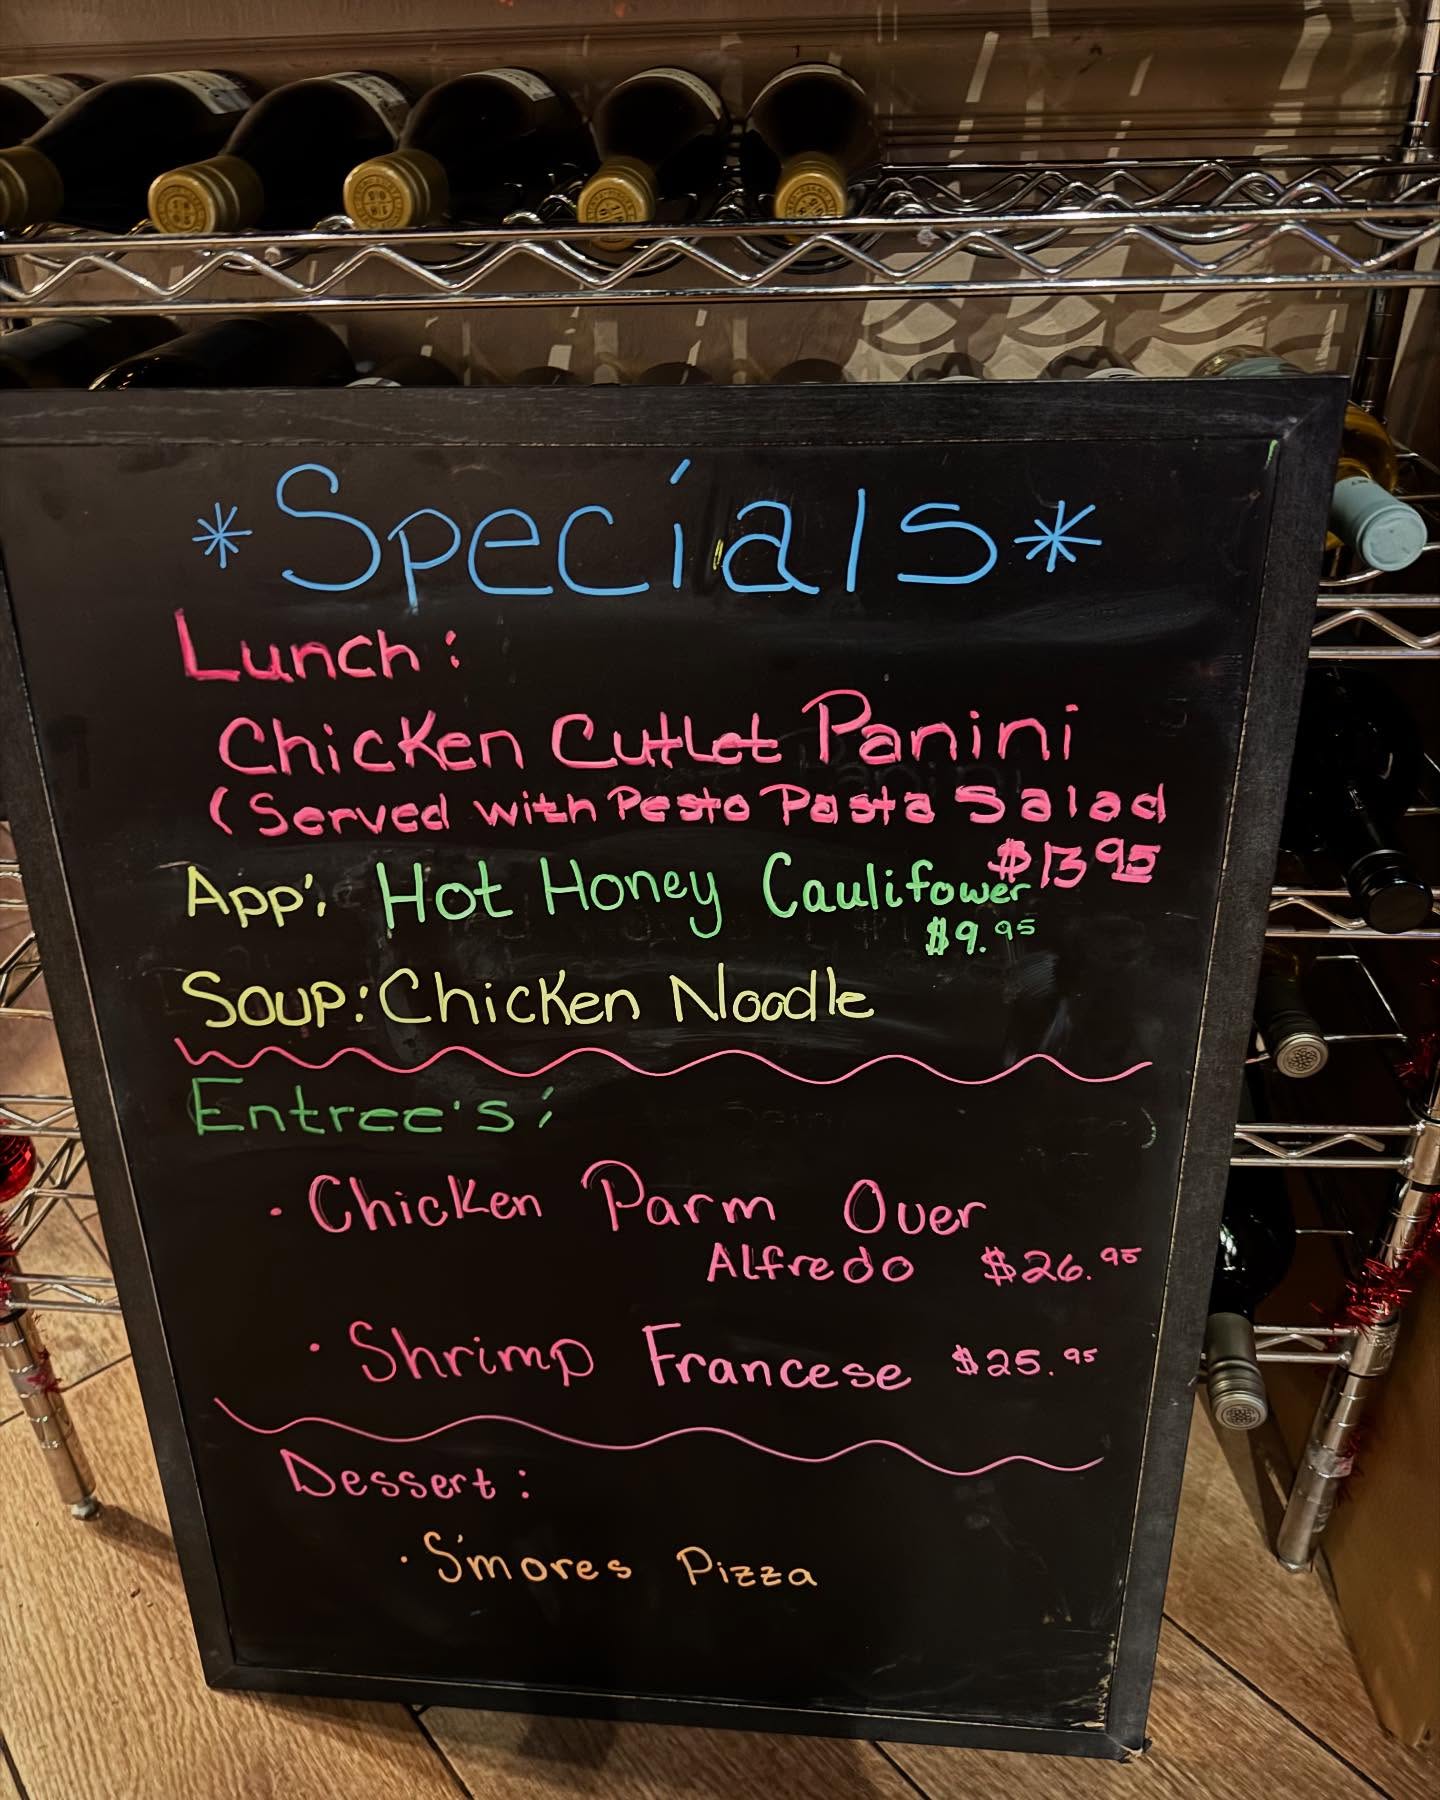 *Specials*
Lunch:
Chicken Cutlet Panini
(Served with Pesto Pasta Salad
$13.95
App: Hot Honey Caulifower
$9.95
Soup: Chicken Noodle
Entree's:
· Chicken Parm Over
Alfredo $26.95
· Shrimp Francese $25.95
Dessert:
· S'mores Pizza